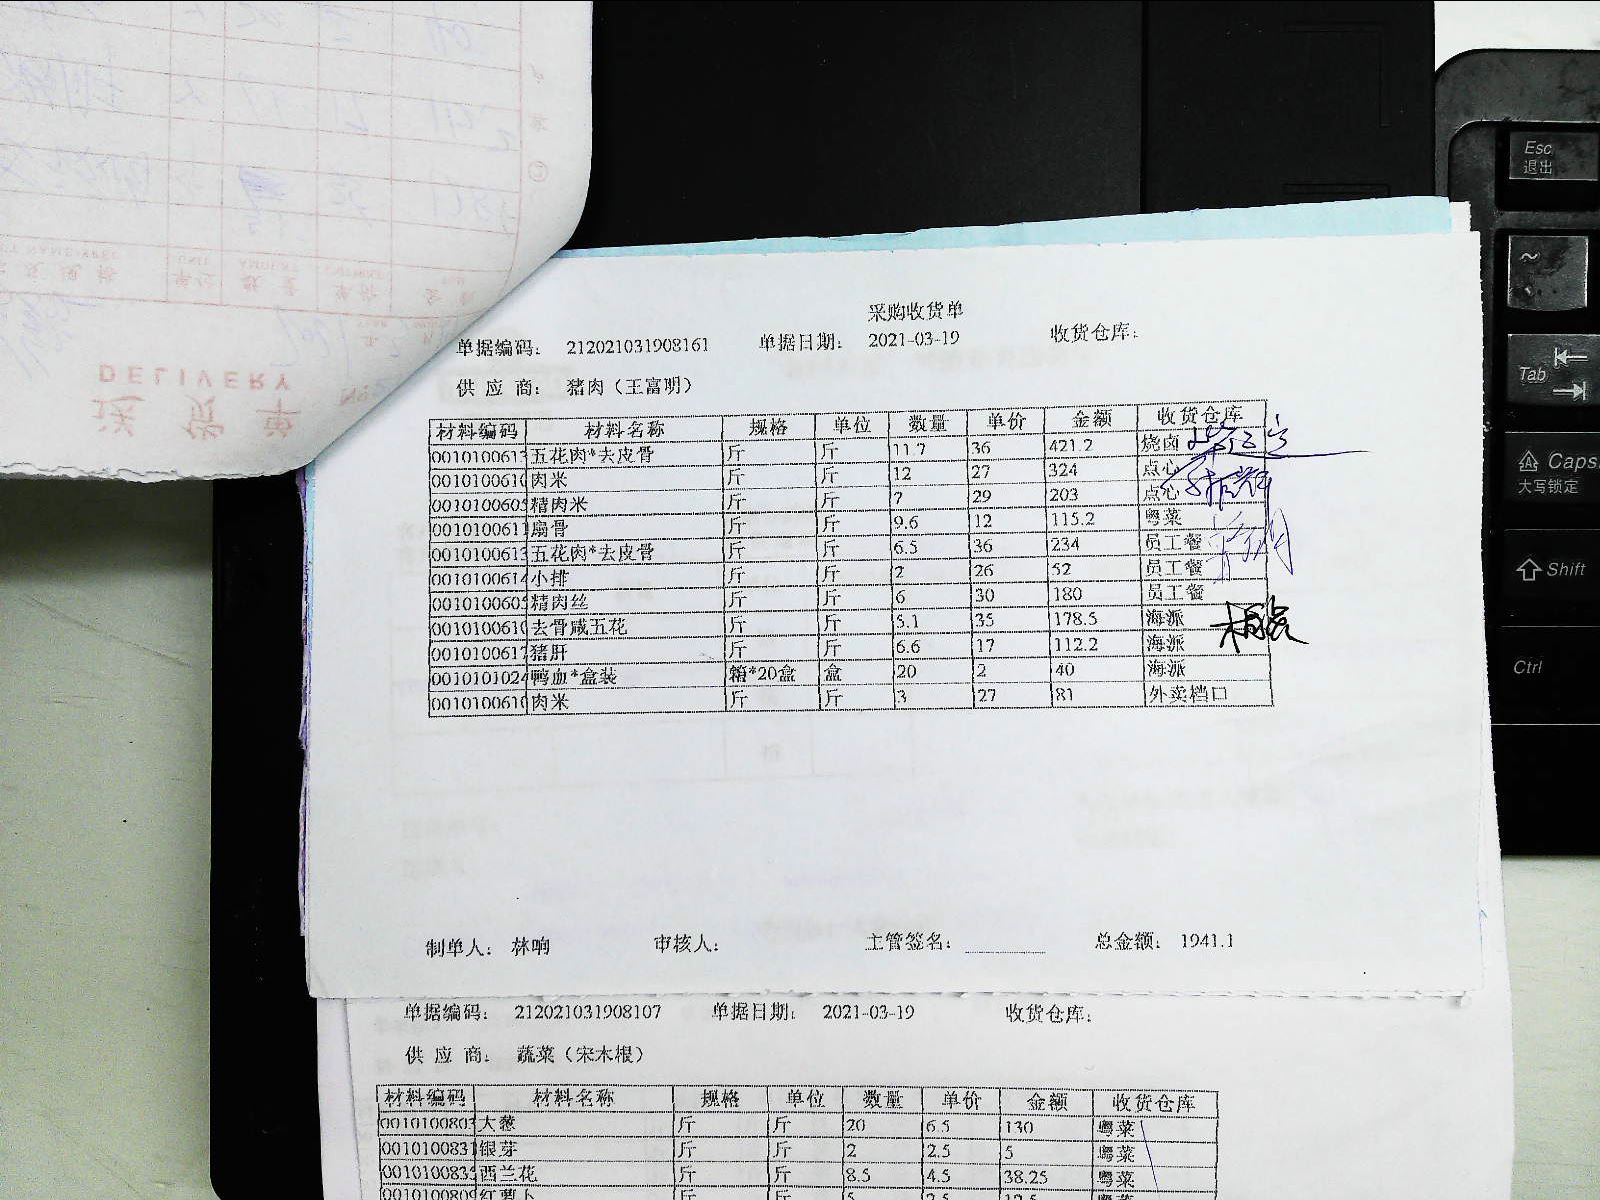 DELIVERY
送货单
Esc
退出
~
Tab
Caps
大写锁定
Shift
Ctrl
采购收货单
单据编码： 212021031908161 单据日期： 2021-03-19 收货仓库：
供应商： 猪肉（王富明）
材料编码 材料名称 规格 单位 数量 单价 金额 收货仓库
0010100613 五花肉*去皮骨 斤 斤 11.7 36 421.2 烧卤
0010100610 肉米 斤 斤 12 27 324 点心
0010100605 精肉米 斤 斤 7 29 203 点心
0010100611 扇骨 斤 斤 9.6 12 115.2 粤菜
0010100613 五花肉*去皮骨 斤 斤 6.5 36 234 员工餐
0010100614 小排 斤 斤 2 26 52 员工餐
0010100605 精肉丝 斤 斤 6 30 180 员工餐
0010100610 去骨咸五花 斤 斤 5.1 35 178.5 海派
0010100617 猪肝 斤 斤 6.6 17 112.2 海派
0010101024 鸭血*盒装 箱*20盒 盒 20 2 40 海派
0010100610 肉米 斤 斤 3 27 81 外卖档口
制单人： 林响 审核人： 主管签名： 总金额： 1941.1
单据编码： 212021031908107 单据日期： 2021-03-19 收货仓库：
供应商： 蔬菜（宋木根）
材料编码 材料名称 规格 单位 数量 单价 金额 收货仓库
0010100803 大葱 斤 斤 20 6.5 130 粤菜
0010100831 银芽 斤 斤 2 2.5 5 粤菜
0010100835 西兰花 斤 斤 8.5 4.5 38.25 粤菜
0010100809 红萝卜 斤 斤 5 2.5 12.5 粤菜